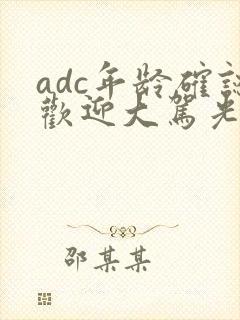 adc年龄確認
歡迎大駕光
邵某某